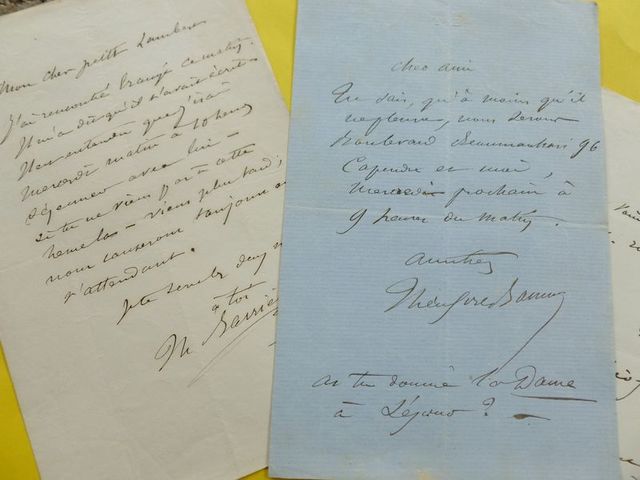 Mon cher petit Lambert
J'ai rencontré Crangé ce matin.
Il m'a dit qu'il t'avait écrit.
bien entendu que j'irai
mercredi matin à 10 heures
déjeuner avec lui –
si tu ne viens pas à cette
heure là – viens plus tard,
nous causerons toujours en
t'attendant.
Je te serre les deux m
à toi
Th Barriè
cher ami
Tu sais, qu'à moins qu'il
ne pleuve, nous serons
Boulevard Beaumarchais 96
Capendu et moi,
Mercredi prochain à
9 heures du matin.
amitiés
Théodore Barrière
as tu donné la Dame
à Léjars ?